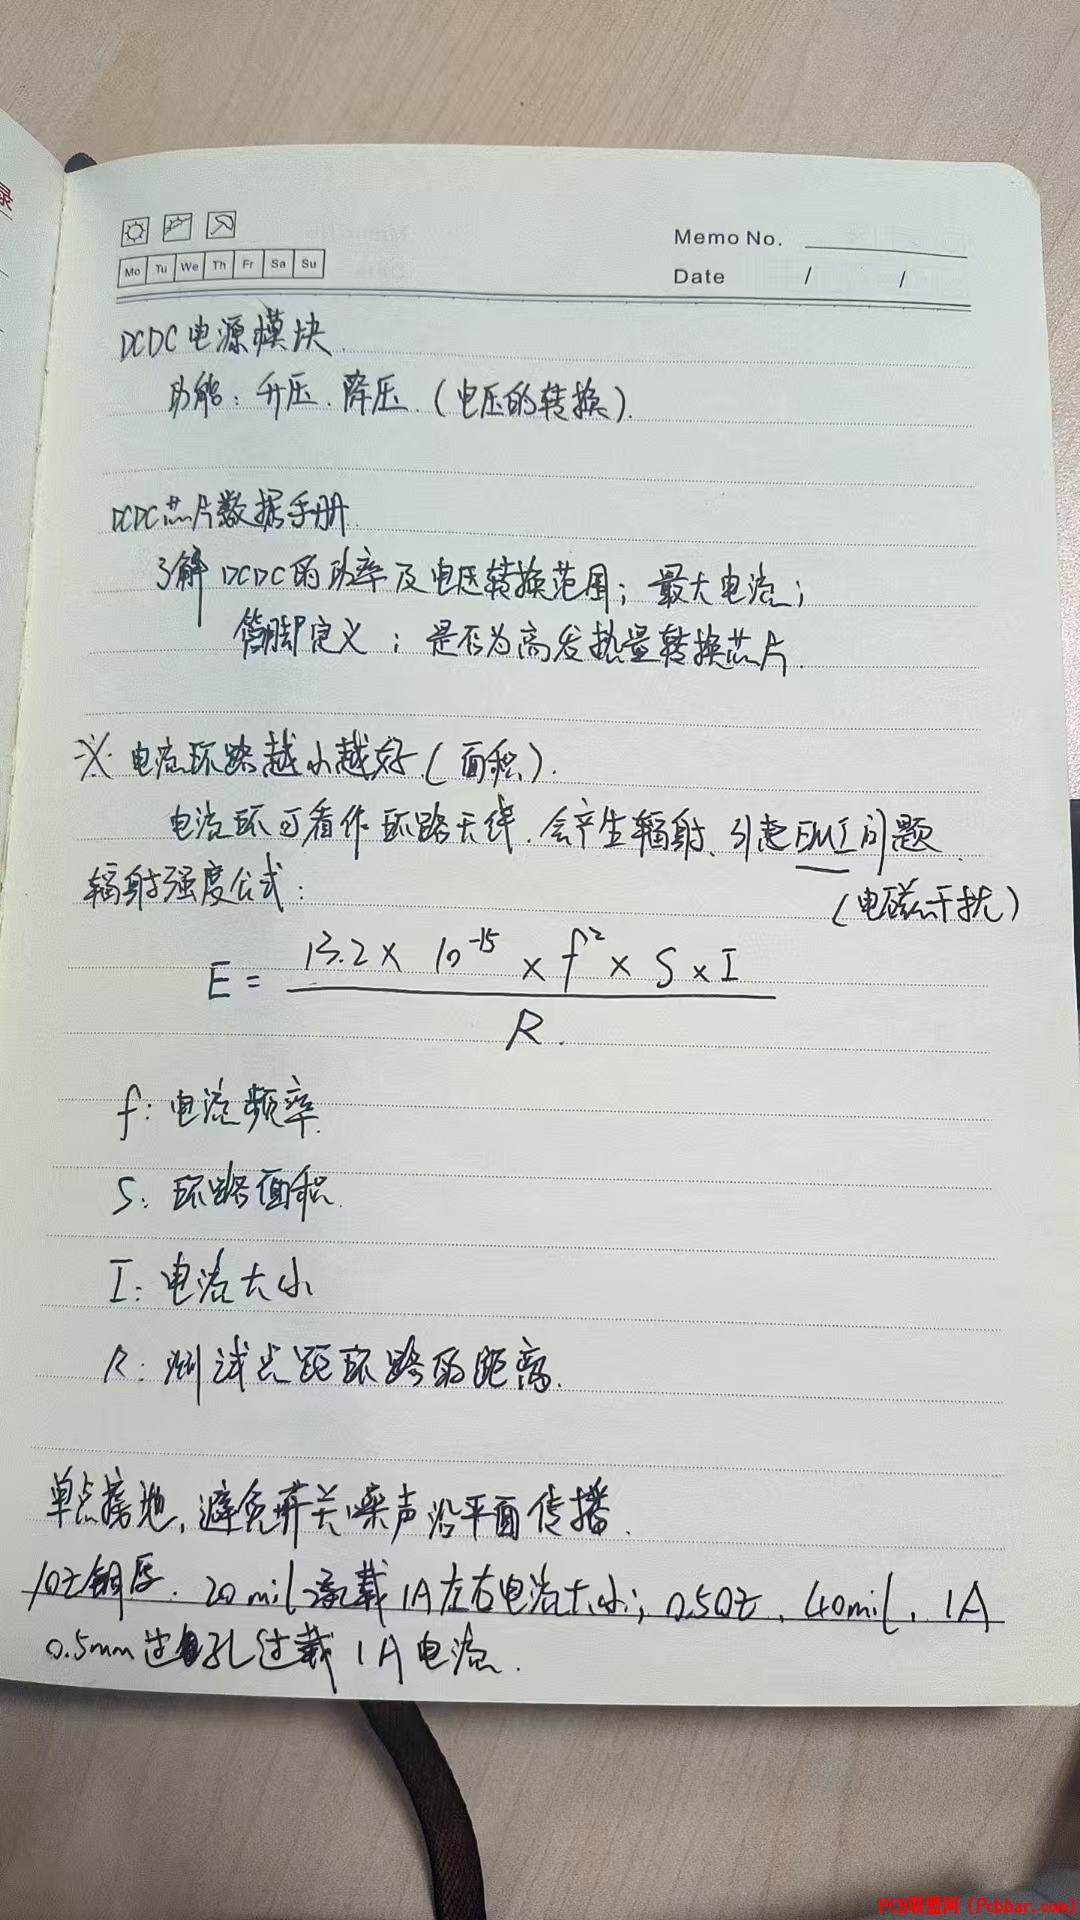 录
Memo No.
Mo Tu We Th Fr Sa Su
Date / /
DCDC电源模块.
功能：升压.降压.(电压的转换).
DCDC芯片数据手册.
了解DCDC的功率及电压转换范围；最大电流；
管脚定义；是否为高发热量转换芯片.
※.电流环路越小越好(面积).
电流环可看作环路天线.会产生辐射、引起EMI问题.
(电磁干扰)
辐射强度公式：
E = 13.2 × 10⁻¹⁵ × f² × S × I / R.
f：电流频率.
S：环路面积.
I：电流大小
R：测试点距环路的距离.
单点接地,避免开关噪声沿平面传播.
1Oz铜厚.20mil承载1A左右电流大小；0.5Oz、40mil、1A
0.5mm过孔过载1A电流.
PCB联盟网（Pcbbar.com）